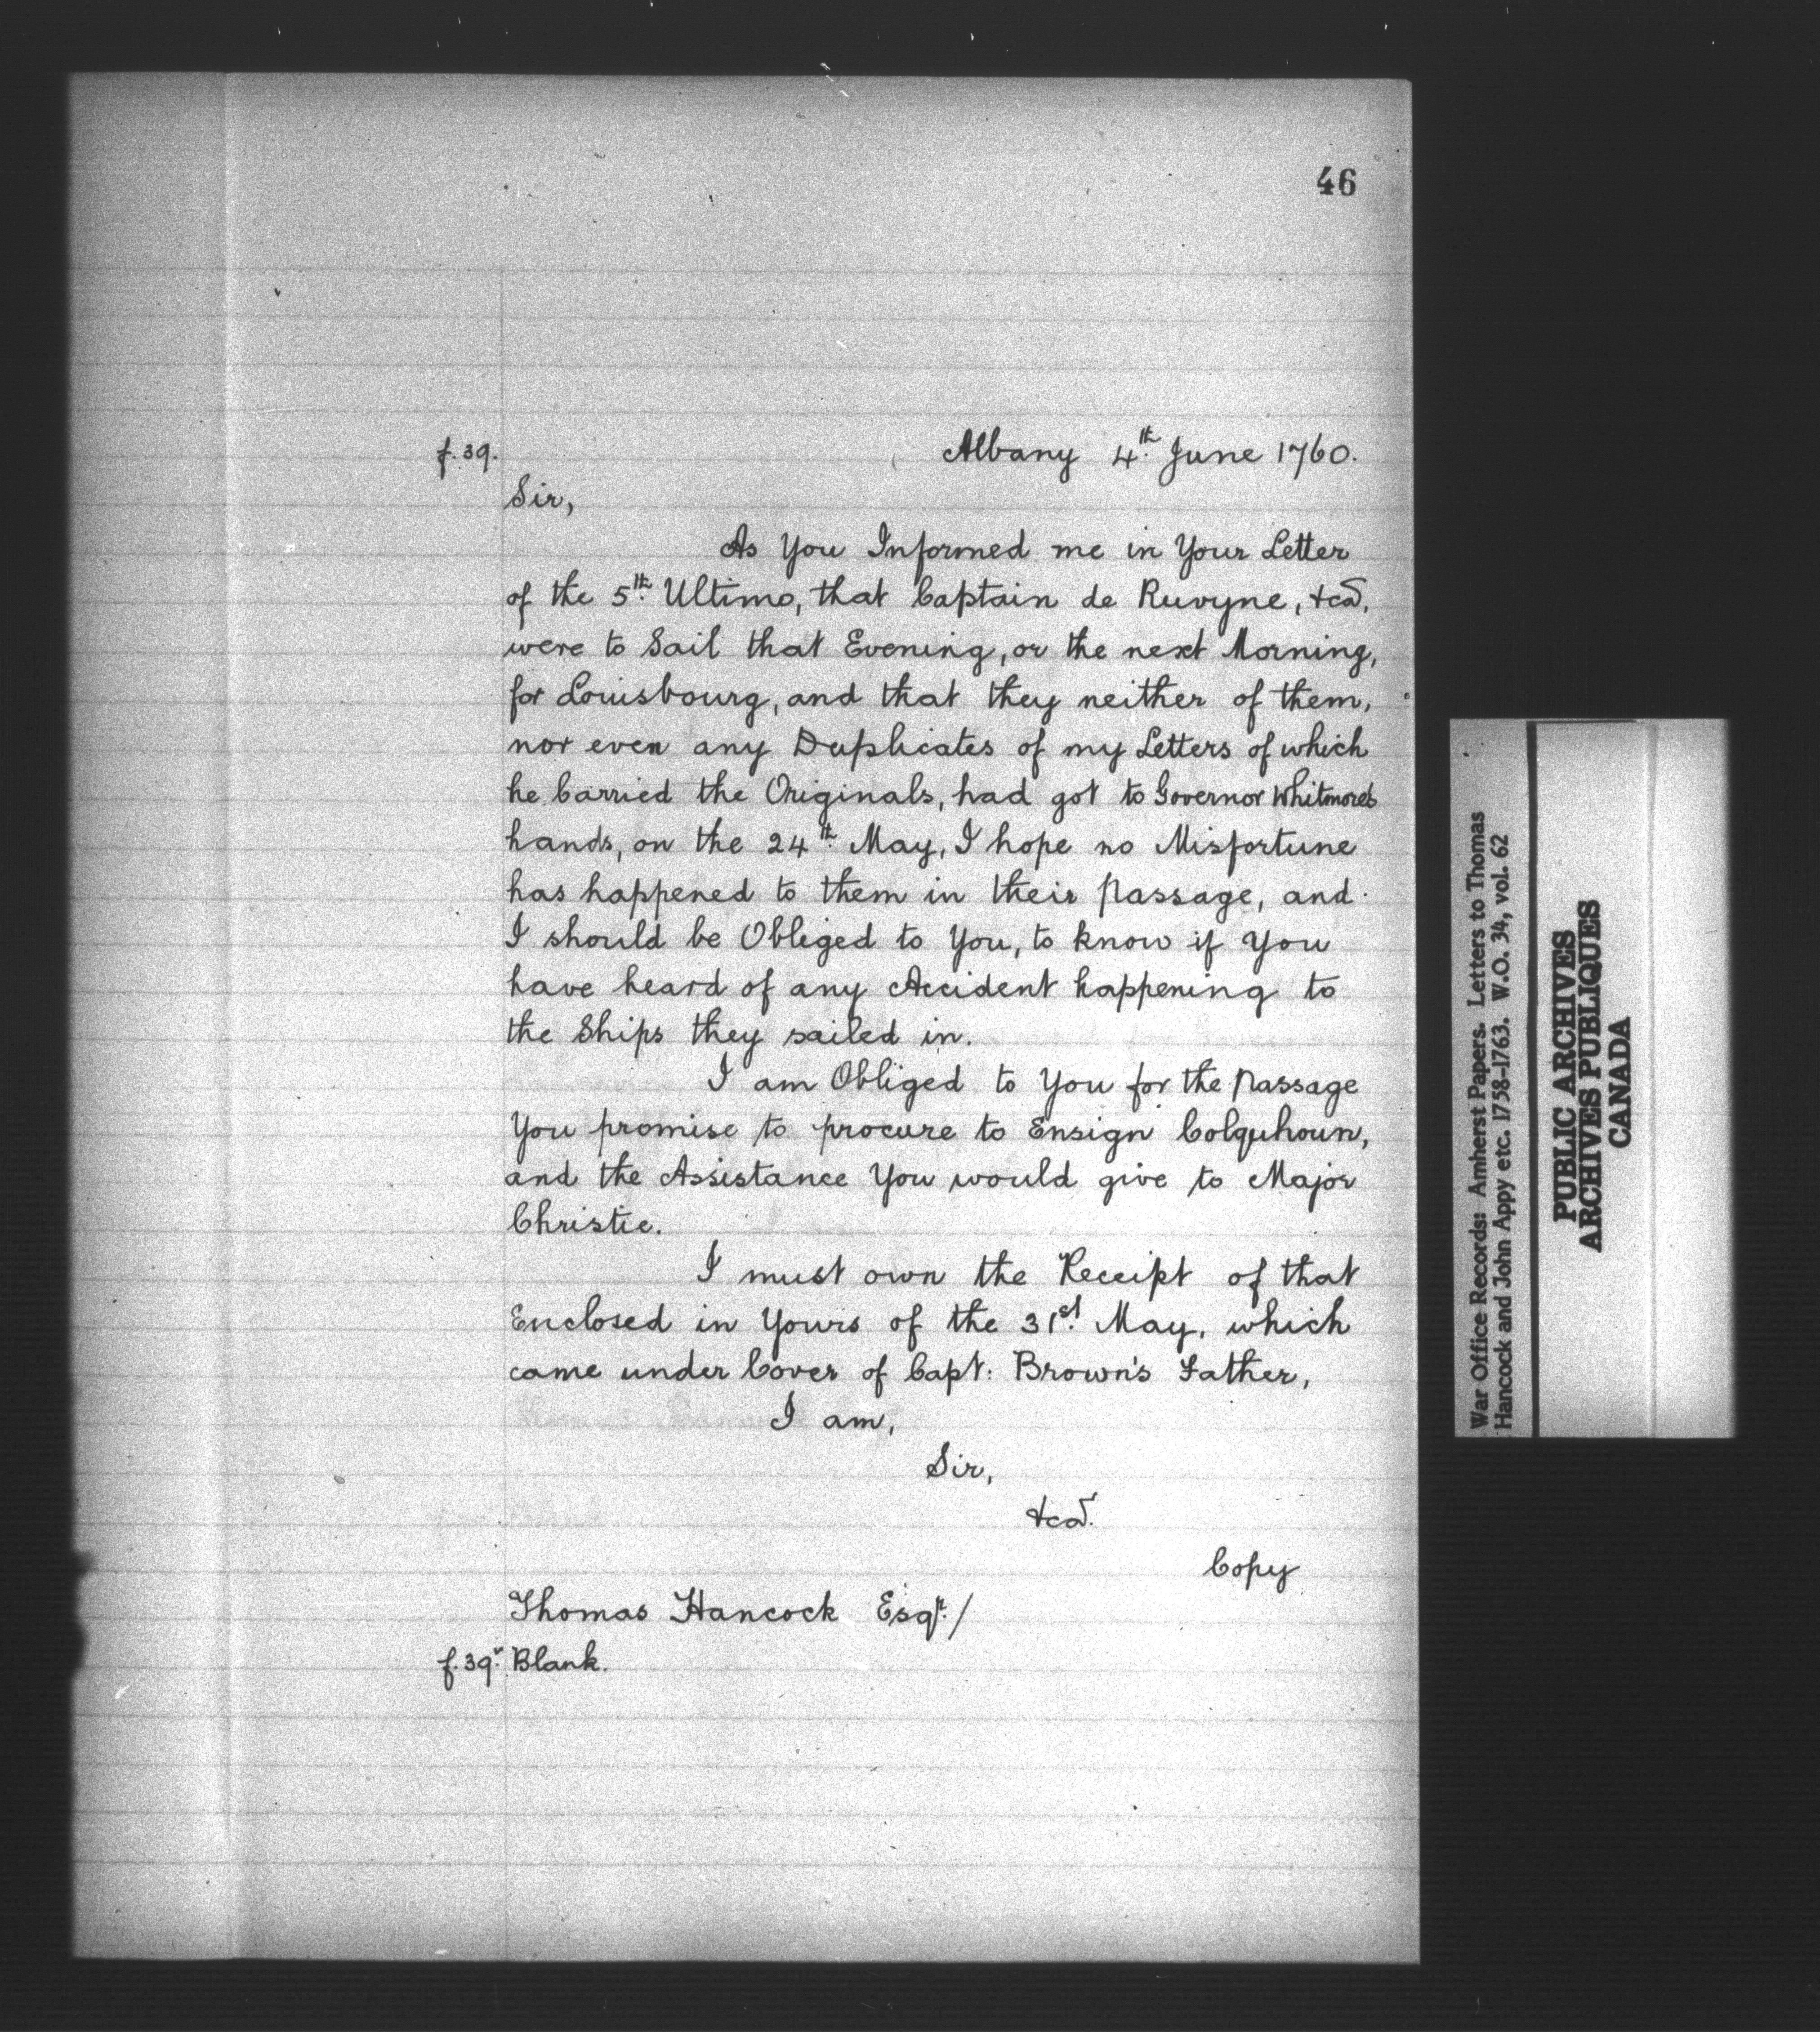 46
f. 39. Albany 4th. June 1760.
Sir,
As You Informed me in Your Letter
of the 5th. Ultimo, that Captain de Ruvyne, &ca.
were to Sail that Evening, or the next Morning,
for Louisbourg, and that they neither of them,
nor even any Duplicates of my Letters of which
he Carried the Originals, had got to Governor Whitmore's
hands, on the 24th. May, I hope no Misfortune
has happened to them in their Passage, and
I should be Obliged to You, to know if You
have heard of any Accident happening to
the Ships they sailed in.
I am Obliged to You for the Passage
You promise to procure to Ensign Colquhoun,
and the Assistance You would give to Major
Christie.
I must own the Receipt of that
Enclosed in Yours of the 31st. May, which
came under Cover of Capt: Brown's Father,
I am,
Sir,
&ca.
Copy
Thomas Hancock Esqr./
f. 39v. Blank.
War Office Records: Amherst Papers. Letters to Thomas
Hancock and John Appy etc. 1758-1763. W.O. 34, vol. 62
PUBLIC ARCHIVES
ARCHIVES PUBLIQUES
CANADA